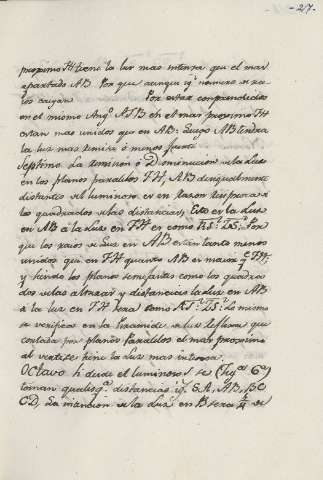 - 27 -
proximo FH tiene la luz mas intensa que el mas
apartado AB. Por que aunque igl numero de ra-
ios caygan Por estar comprendidos
en el mismo Angl ASB en el mas proximo FH
estan mas unidos que en AB: Luego AB tendra
la luz mas tenue ó menos fuerte
Septimo La remision ó Diminucion de la luz
en los planos paralelos FH, AB desigualmente
distantes del luminoso es en razon reciproca de
los quadrados de las distancias; Esto es la luz
en AB á la luz en FH es como Por
que los raios de luz en AB están tanto menos
unidos que en FH quanto AB es maior qe FH.
y siendo los planos semejantes como los quadra
dos de las distancias la luz en AB
á la luz en FH sera como Lo mismo
se verifica en la Piramide de luz reflexa que
cortada por planos Paralelos el mas proximo
al vertice tiene la luz mas intensa.
Octavo Si desde el luminoso S se (Figa 6a)
toman qualesqa distancias SA, AB, BC
CD, La de la Luz en B sera de